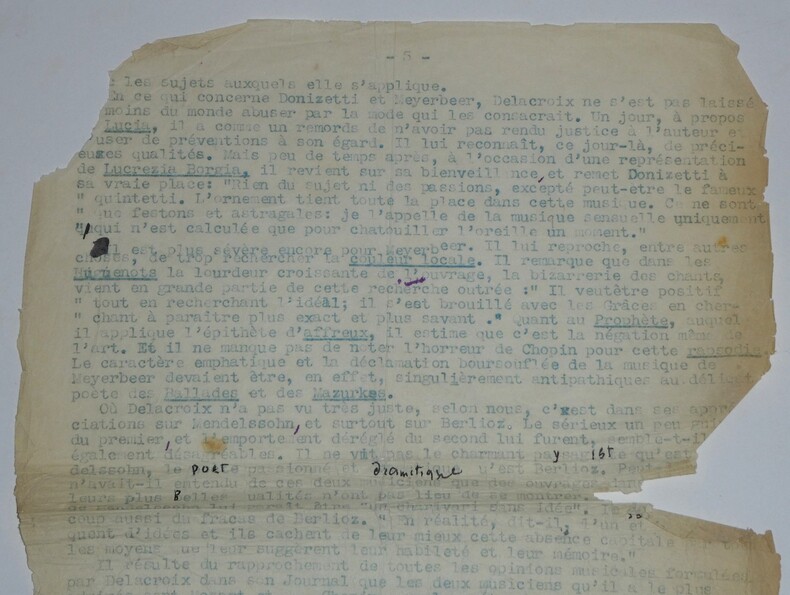 - 5 -
: les sujets auxquels elle s'applique.
En ce qui concerne Donizetti et Meyerbeer, Delacroix ne s'est pas laissé
moins du monde abuser par la mode qui les consacrait. Un jour, à propos
Lucia, il a comme un remords de n'avoir pas rendu justice à l'auteur et
'user de préventions à son égard. Il lui reconnaît, ce jour-là, de préci-
euses qualités. Mais peu de temps après, à l'occasion d'une représentation
de Lucrezia Borgia, il revient sur sa bienveillance, et remet Donizetti à
sa vraie place: "Rien du sujet ni des passions, excepté peut-être le fameux
" quintetti. L'ornement tient toute la place dans cette musique. Ce ne sont
" que festons et astragales: je l'appelle de la musique sensuelle uniquement
" qui n'est calculée que pour chatouiller l'oreille un moment."
Il est plus sévère encore pour Meyerbeer. Il lui reproche, entre autres
choses, de trop rechercher la couleur locale. Il remarque que dans les
Huguenots la lourdeur croissante de l'ouvrage, la bizarrerie des chants,
vient en grande partie de cette recherche outrée :" Il veutêtre positif
" tout en recherchant l'idéal; il s'est brouillé avec les Grâces en cher-
" chant à paraître plus exact et plus savant ." Quant au Prophète, auquel
il applique l'épithète d'affreux, il estime que c'est la négation même de
l'art. Et il ne manque pas de noter l'horreur de Chopin pour cette rapsodie.
Le caractère emphatique et la déclamation boursouflée de la musique de
Meyerbeer devaient être, en effet, singulièrement antipathiques au délicat
poète des Ballades et des Mazurkes.
Où Delacroix n'a pas vu très juste, selon nous, c'est dans ses appré-
ciations sur Mendelssohn, et surtout sur Berlioz. Le sérieux un peu
du premier, et l'emportement déréglé du second lui furent, semble-t-il
également désagréables. Il ne vit pas le charmant paysagiste qu'est
delssohn, le poète passionné et dramatique qu'est Berlioz.
n'avait-il entendu de ces deux musiciens que des ouvrages
leurs plus belles qualités n'ont pas lieu de se montrer.
de Mendelssohn lui paraît être "un charivari sans idée".
coup aussi du fracas de Berlioz. "En réalité, dit-il,
quent d'idées et ils cachent de leur mieux cette absence capitale
les moyens que leur suggèrent leur habileté et leur mémoire."
Il résulte du rapprochement de toutes les opinions musicales formulées
par Delacroix dans son Journal que les deux musiciens qu'il a le plus